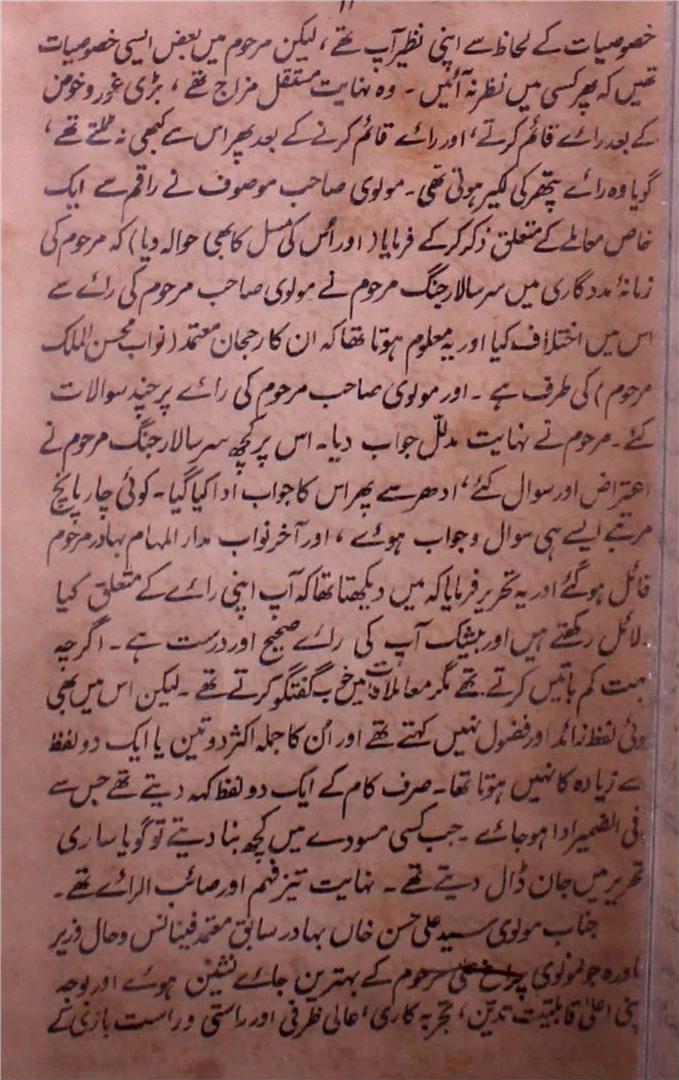 ۱۱
خصوصیات کے لحاظ سے اپنی نظیر آپ تھے، لیکن مرحوم میں بعض ایسی خصوصیات
تھیں کہ پھر کسی میں نظر نہ آئیں۔ وہ نہایت مستقل مزاج تھے، بڑی غور و خوض
کے بعد رائے قائم کرتے، اور رائے قائم کرنے کے بعد پھر اس سے کبھی نہ ٹلتے تھے،
گویا وہ رائے پتھر کی لکیر ہوتی تھی۔ مولوی صاحب موصوف نے راقم سے ایک
خاص معاملے کے متعلق ذکر کر کے فرمایا (اور اُس کی مسل کا بھی حوالہ دیا) کہ مرحوم کی
زمانۂ مددگاری میں سر سالار جنگ مرحوم نے مولوی صاحب مرحوم کی رائے سے
اس میں اختلاف کیا اور یہ معلوم ہوتا تھا کہ ان کا رجحان معتمد (نواب محسن الملک
مرحوم) کی طرف ہے۔ اور مولوی صاحب مرحوم کی رائے پر چند سوالات
کئے۔ مرحوم نے نہایت مدلّل جواب دیا۔ اس پر کچھ سر سالار جنگ مرحوم نے
اعتراض اور سوال کئے، ادھر سے پھر اس کا جواب ادا کیا گیا۔ کوئی چار پانچ
مرتبے ایسے ہی سوال و جواب ہوئے، اور آخر نواب مدار المہام بہادر مرحوم
قائل ہو گئے اور یہ تحریر فرمایا کہ میں دیکھتا تھا کہ آپ اپنی رائے کے متعلق کیا
دلائل رکھتے ہیں اور بیشک آپ کی رائے صحیح اور درست ہے۔ اگرچہ
بہت کم باتیں کرتے تھے مگر معاملات میں خوب گفتگو کرتے تھے۔ لیکن اس میں بھی
کوئی لفظ زائد اور فضول نہیں کہتے تھے اور اُن کا جملہ اکثر دو تین یا ایک دو لفظ
سے زیادہ کا نہیں ہوتا تھا۔ صرف کام کے ایک دو لفظ کہہ دیتے تھے جس سے
فی الضمیر ادا ہو جائے۔ جب کسی مسودے میں کچھ بنا دیتے تو گویا ساری
تحریر میں جان ڈال دیتے تھے۔ نہایت تیز فہم اور صائب الرائے تھے۔
جناب مولوی سید علی حسن خاں بہادر سابق معتمد فینانس و حال وزیر
جاورہ جو مولوی چراغ علی مرحوم کے بہترین جائے نشین ہوئے اور بوجہ
اپنی اعلیٰ قابلیت تدیّن، تجربہ کاری، عالی ظرفی اور راستی و راست بازی کے